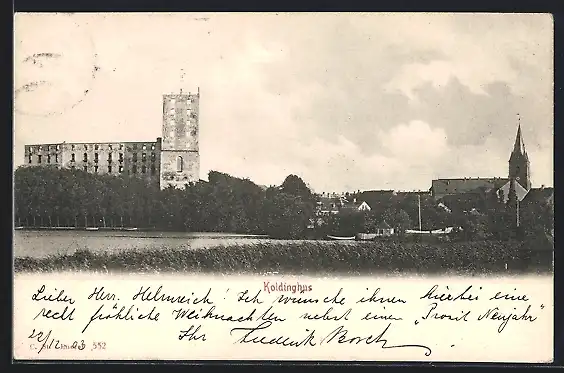 Koldinghus
Lieber Herr Helmreich! Ich wünsche ihnen hierbei eine
recht fröhliche Weihnachten nebst einen "Prosit Neujahr"
22/12 03 Ihr Frederik Borch,
552